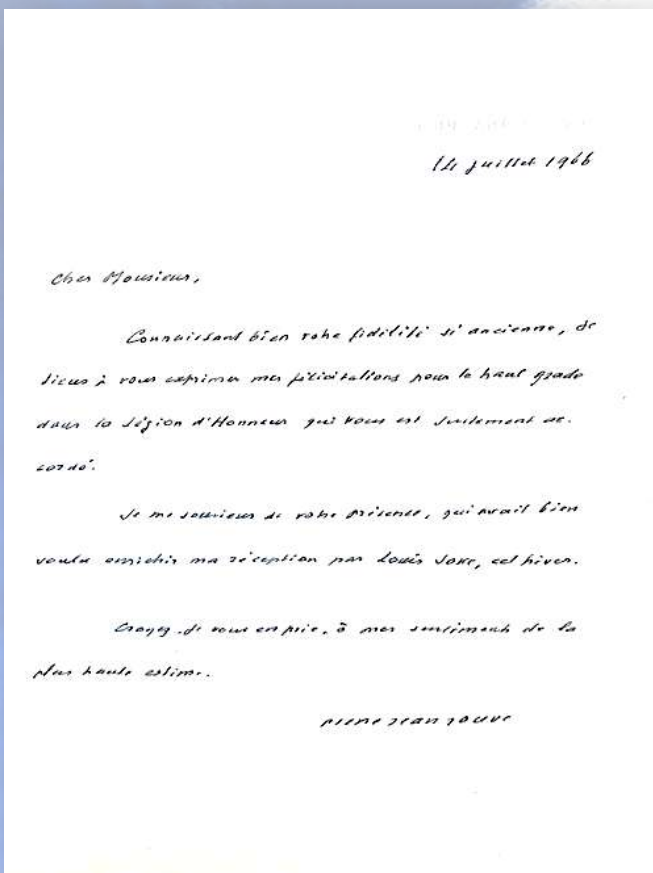 14 juillet 1966
Cher Monsieur,
Connaissant bien votre fidélité si ancienne, je
tiens à vous exprimer mes félicitations pour le haut grade
dans la Légion d'Honneur qui vous est justement ac-
cordé.
Je me souviens de votre présence, qui avait bien
voulu enrichir ma réception par Louis Joxe, cet hiver.
Croyez, je vous en prie, à mes sentiments de la
plus haute estime.
Pierre Jean Jouve